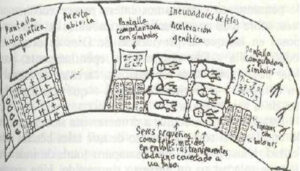 Pantalla
holográfica
Puerta
abierta
Pantalla
computadora
con símbolos
Incubadores de fetos
Aceleración
genética
Pantalla
computadora
símbolos
botones
Seres pequeños
como fetos, metidos
en envolturas transparentes
cada uno conectado a
un tubo.